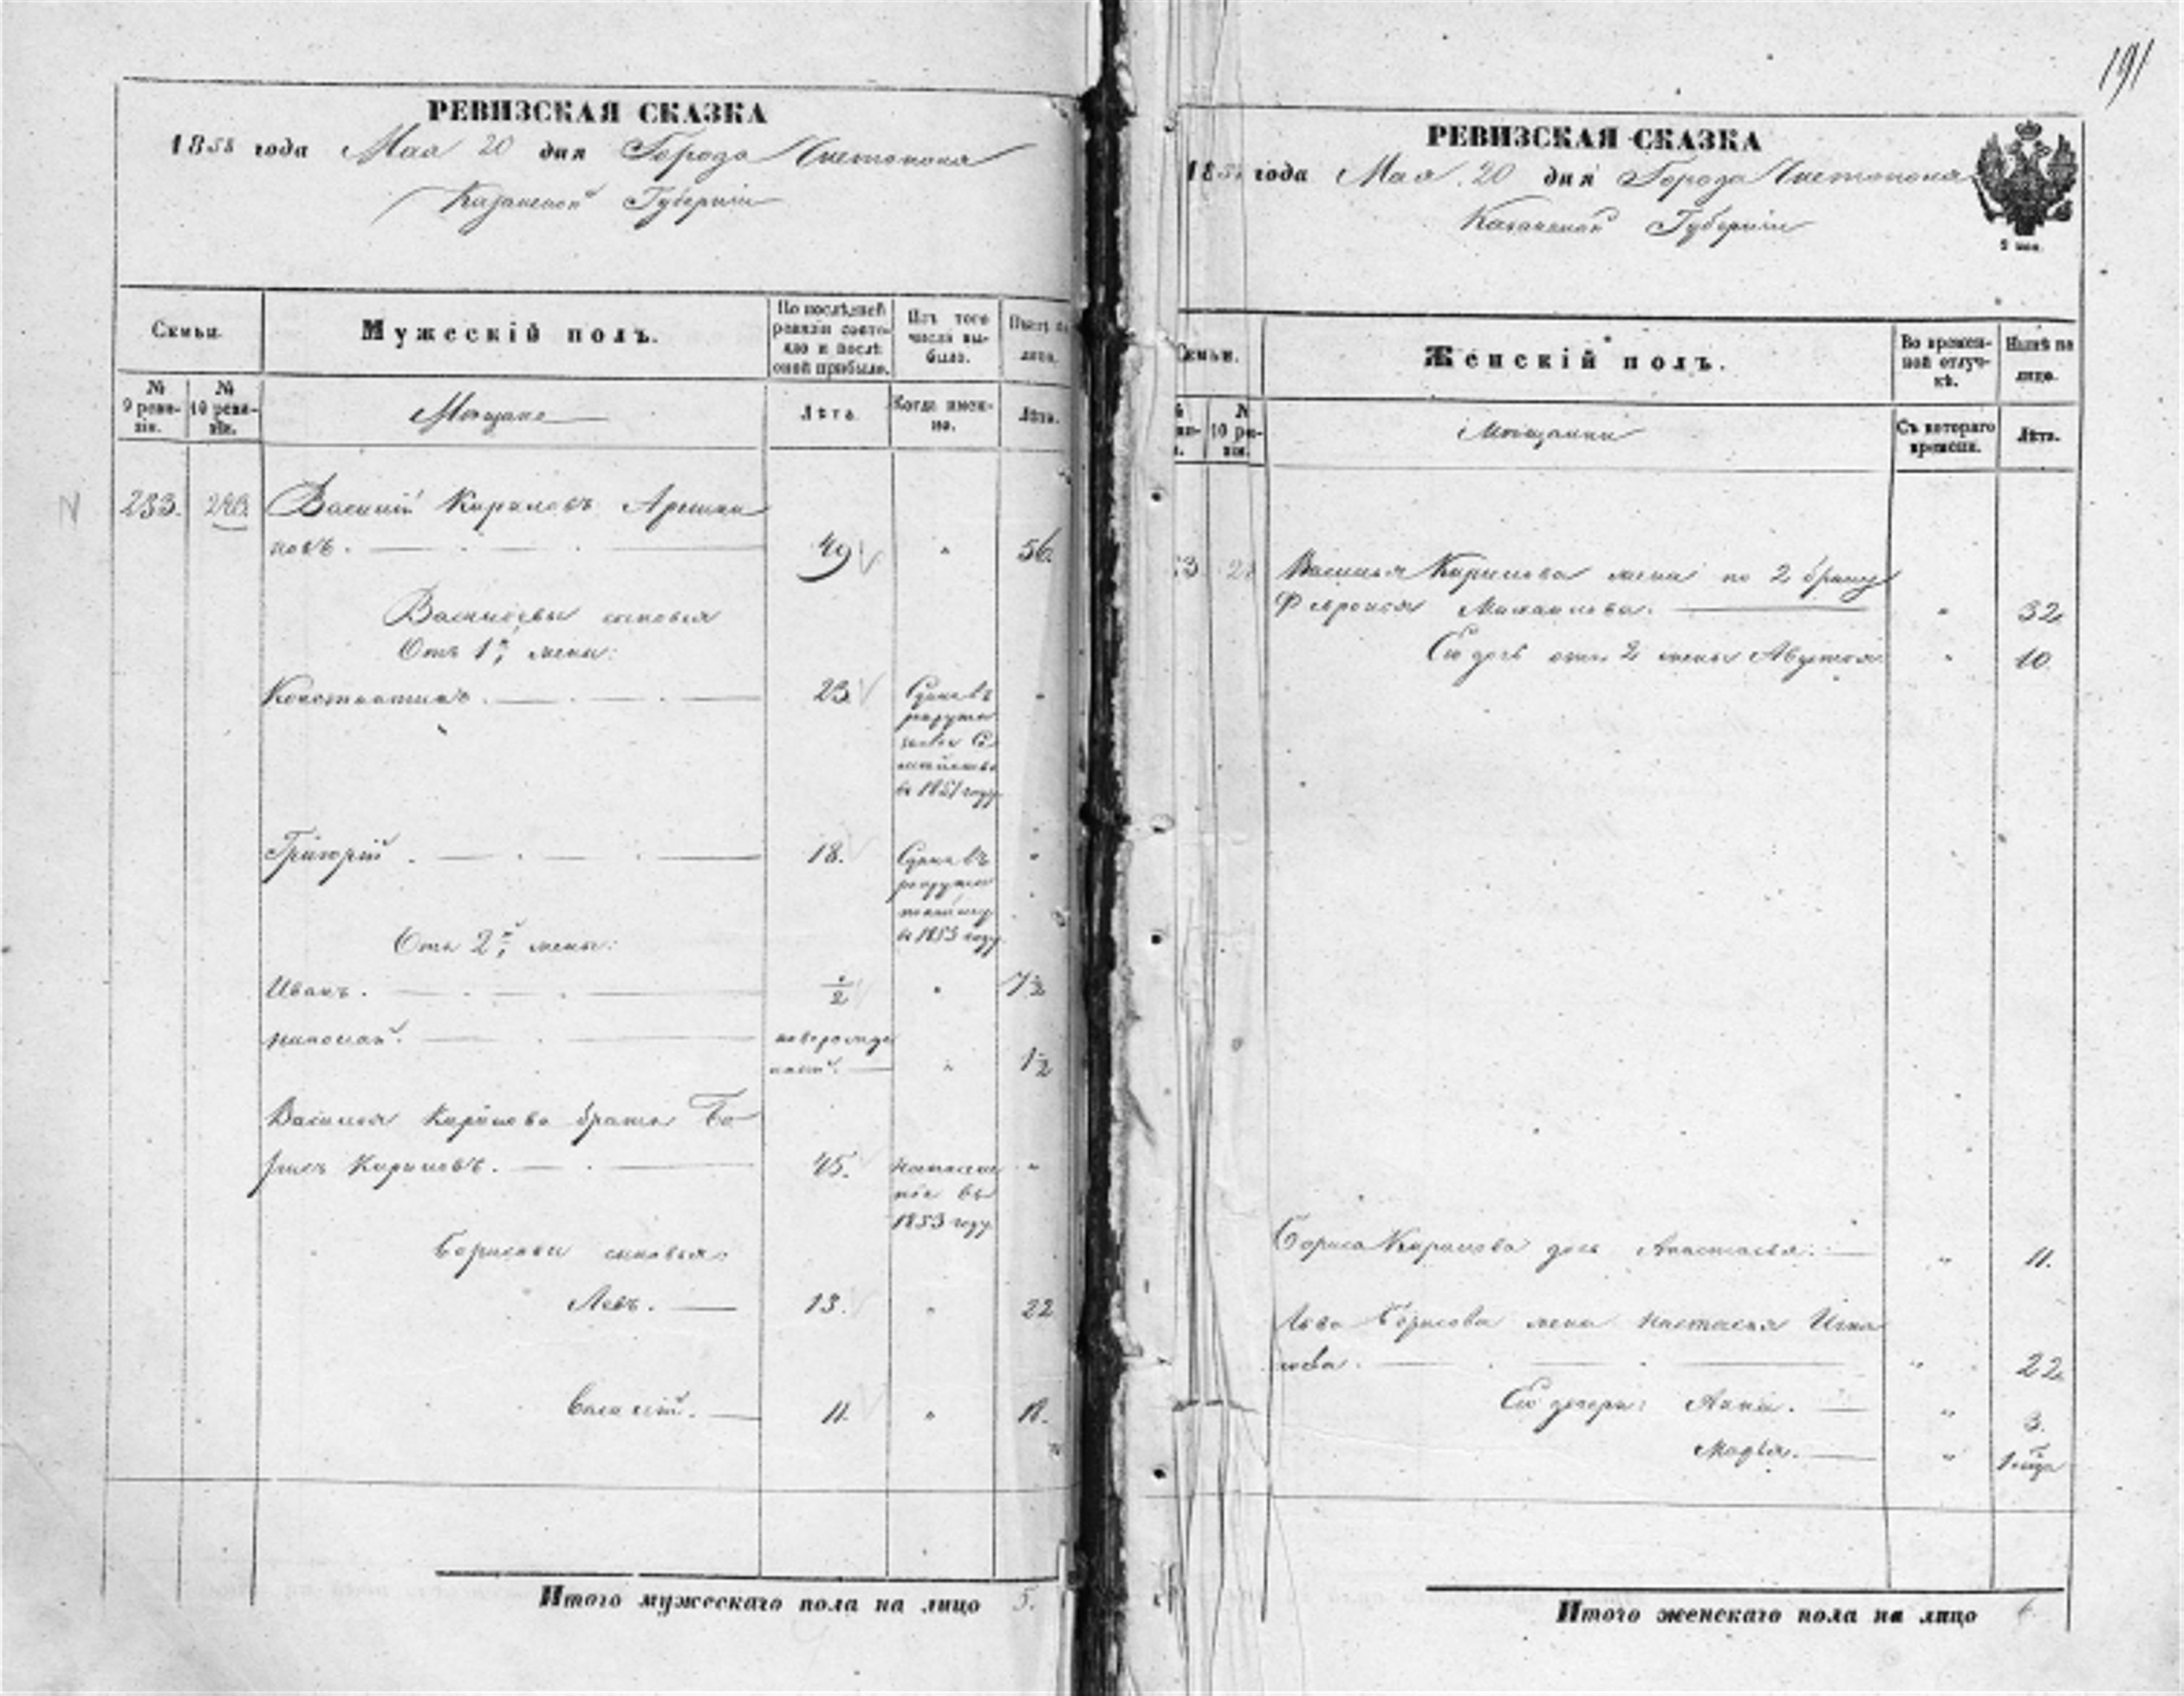 191
РЕВИЗСКАЯ СКАЗКА
1858 года Мая 20 дня Города Чистополя
Казанской Губернии
Семьи.
Мужескій полъ.
По послѣдней ревизіи состояло и послѣ оной прибыло.
Изъ того числа выбыло.
Нынѣ на лицо.
№ 9 ревизіи.
№ 10 ревизіи.
Мѣщане
Лѣта.
Когда именно.
Лѣта.
233. 240. Василій Кириловъ Аришин
новъ. 49 " 56.
Васильевы сыновья
Отъ 1й жены:
Константинъ. 23. Сданъ въ "
рекруты
в 1851 году
Григорій. 18. Сданъ въ "
рекруты
в 1853 году
Отъ 2й жены:
Иванъ. ½ " 7½
Николай. новорожде
нный. " 1½
Василья Кирилова братъ Бо
рисъ Кириловъ. 45. "
въ
1853 году
Борисовы сыновья:
Левъ. 13. " 22
Василій. 11. "
Итого мужескаго пола на лицо 5.
РЕВИЗСКАЯ СКАЗКА
185 года Мая 20 дня Города Чистополя
Казанской Губернии
2 коп.
Семьи.
Женскій полъ.
Во временной отлучкѣ.
Нынѣ на лицо.
№ 10 ревизіи.
Мѣщанки
Съ котораго времени.
Лѣта.
Василья Кирилова жена по 2 браку
Февронья Михайлова. " 32
Его дочь отъ 2 жены Авдотья " 10.
Бориса Кирилова дочь Анастасья. " 11.
Льва Борисова жена Настасья
" 22
Его дочери: Анна. " 3.
Марья. "
Итого женскаго пола на лицо